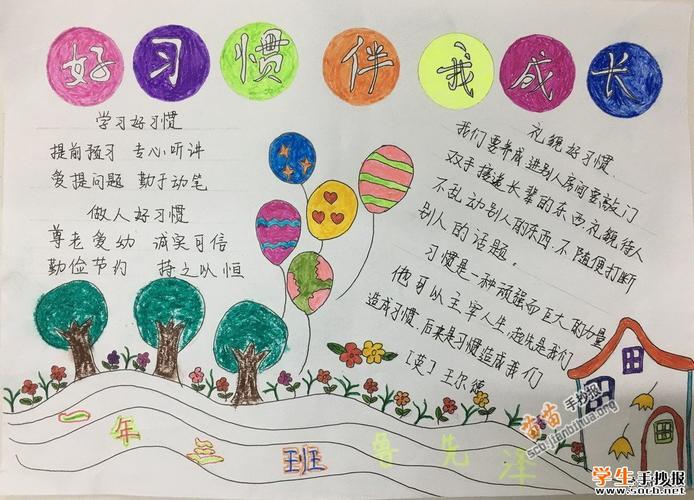 好习惯伴我成长
学习好习惯
提前预习 专心听讲
爱提问题 勤于动笔
做人好习惯
尊老爱幼 诚实可信
勤俭节约 持之以恒
礼貌好习惯
我们要养成进别人房间要敲门
双手接递长辈的东西.礼貌待人
不乱动别人的东西.不随便打断
别人的话题。
习惯是一种顽强而巨大的力量
他可以主宰人生，起先是我们
造成习惯.后来是习惯造成我们
[英]王尔德
一年三班 鲁先泽
苗苗手抄报
sc.jianbihua.org
学生手抄报
www.soch.net